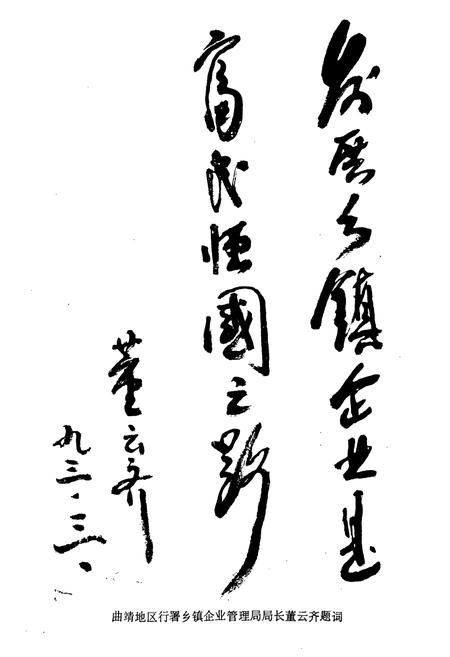 发展乡鎮企业是
富民强國之路
董云齐
九三·三·
曲靖地区行署乡镇企业管理局局长董云齐题词